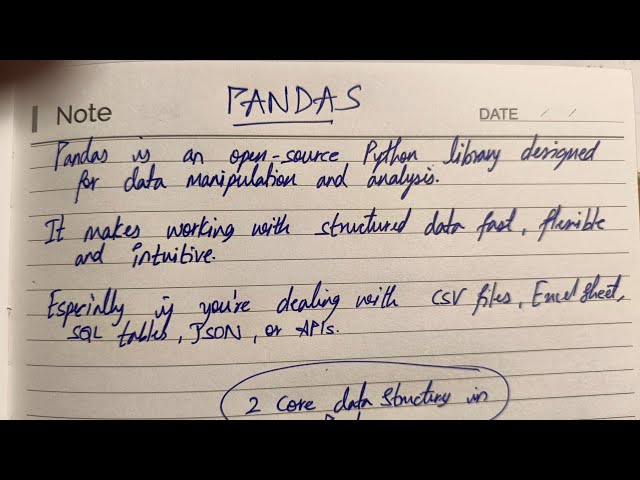 Note
PANDAS
DATE / /
Pandas is an open-source Python library designed
for data manipulation and analysis.
It makes working with structured data fast, flexible
and intuitive.
Especially if you're dealing with CSV files, Excel sheet,
SQL tables, JSON, or APIs.
2 core data structures in